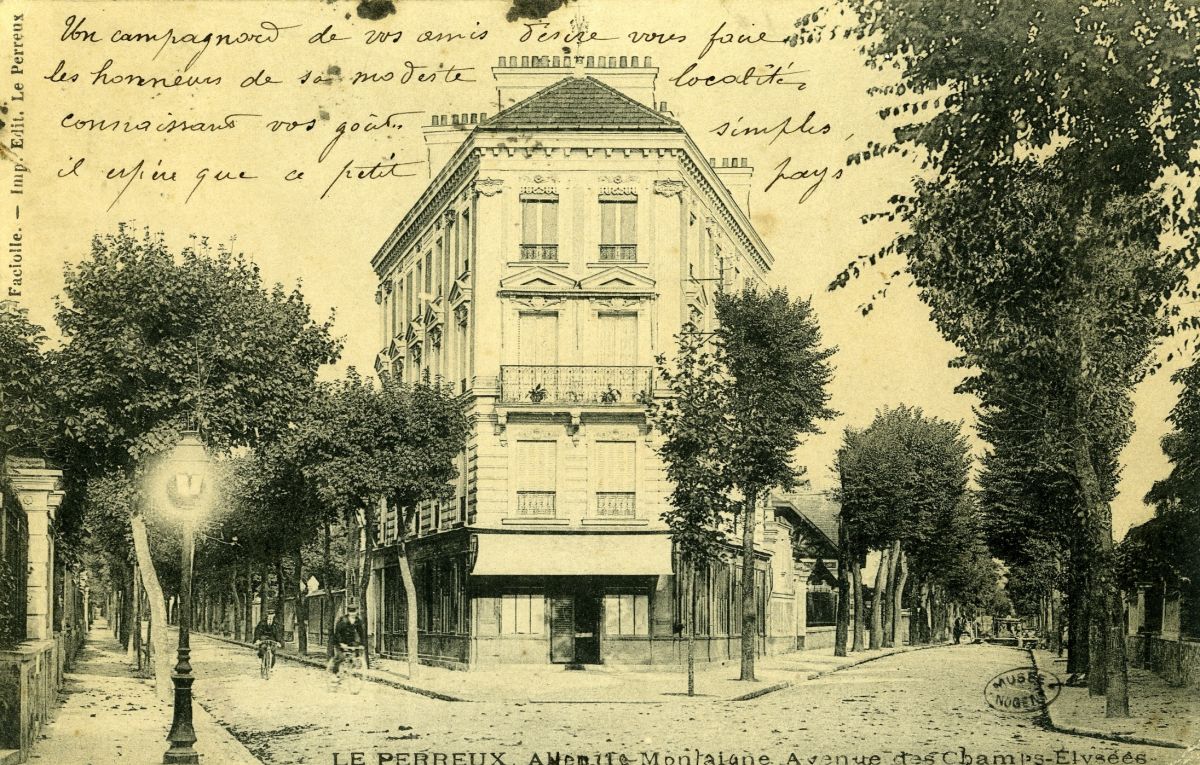 Un campagnard de vos amis désire vous faire
les honneurs de sa modeste localité,
connaissant vos goûts simples,
il espère que ce petit pays
Faciolle. — Imp. Edit. Le Perreux
MUSÉE
NOGENT
LE PERREUX. Avenue Montaigne Avenue des Champs-Elysées